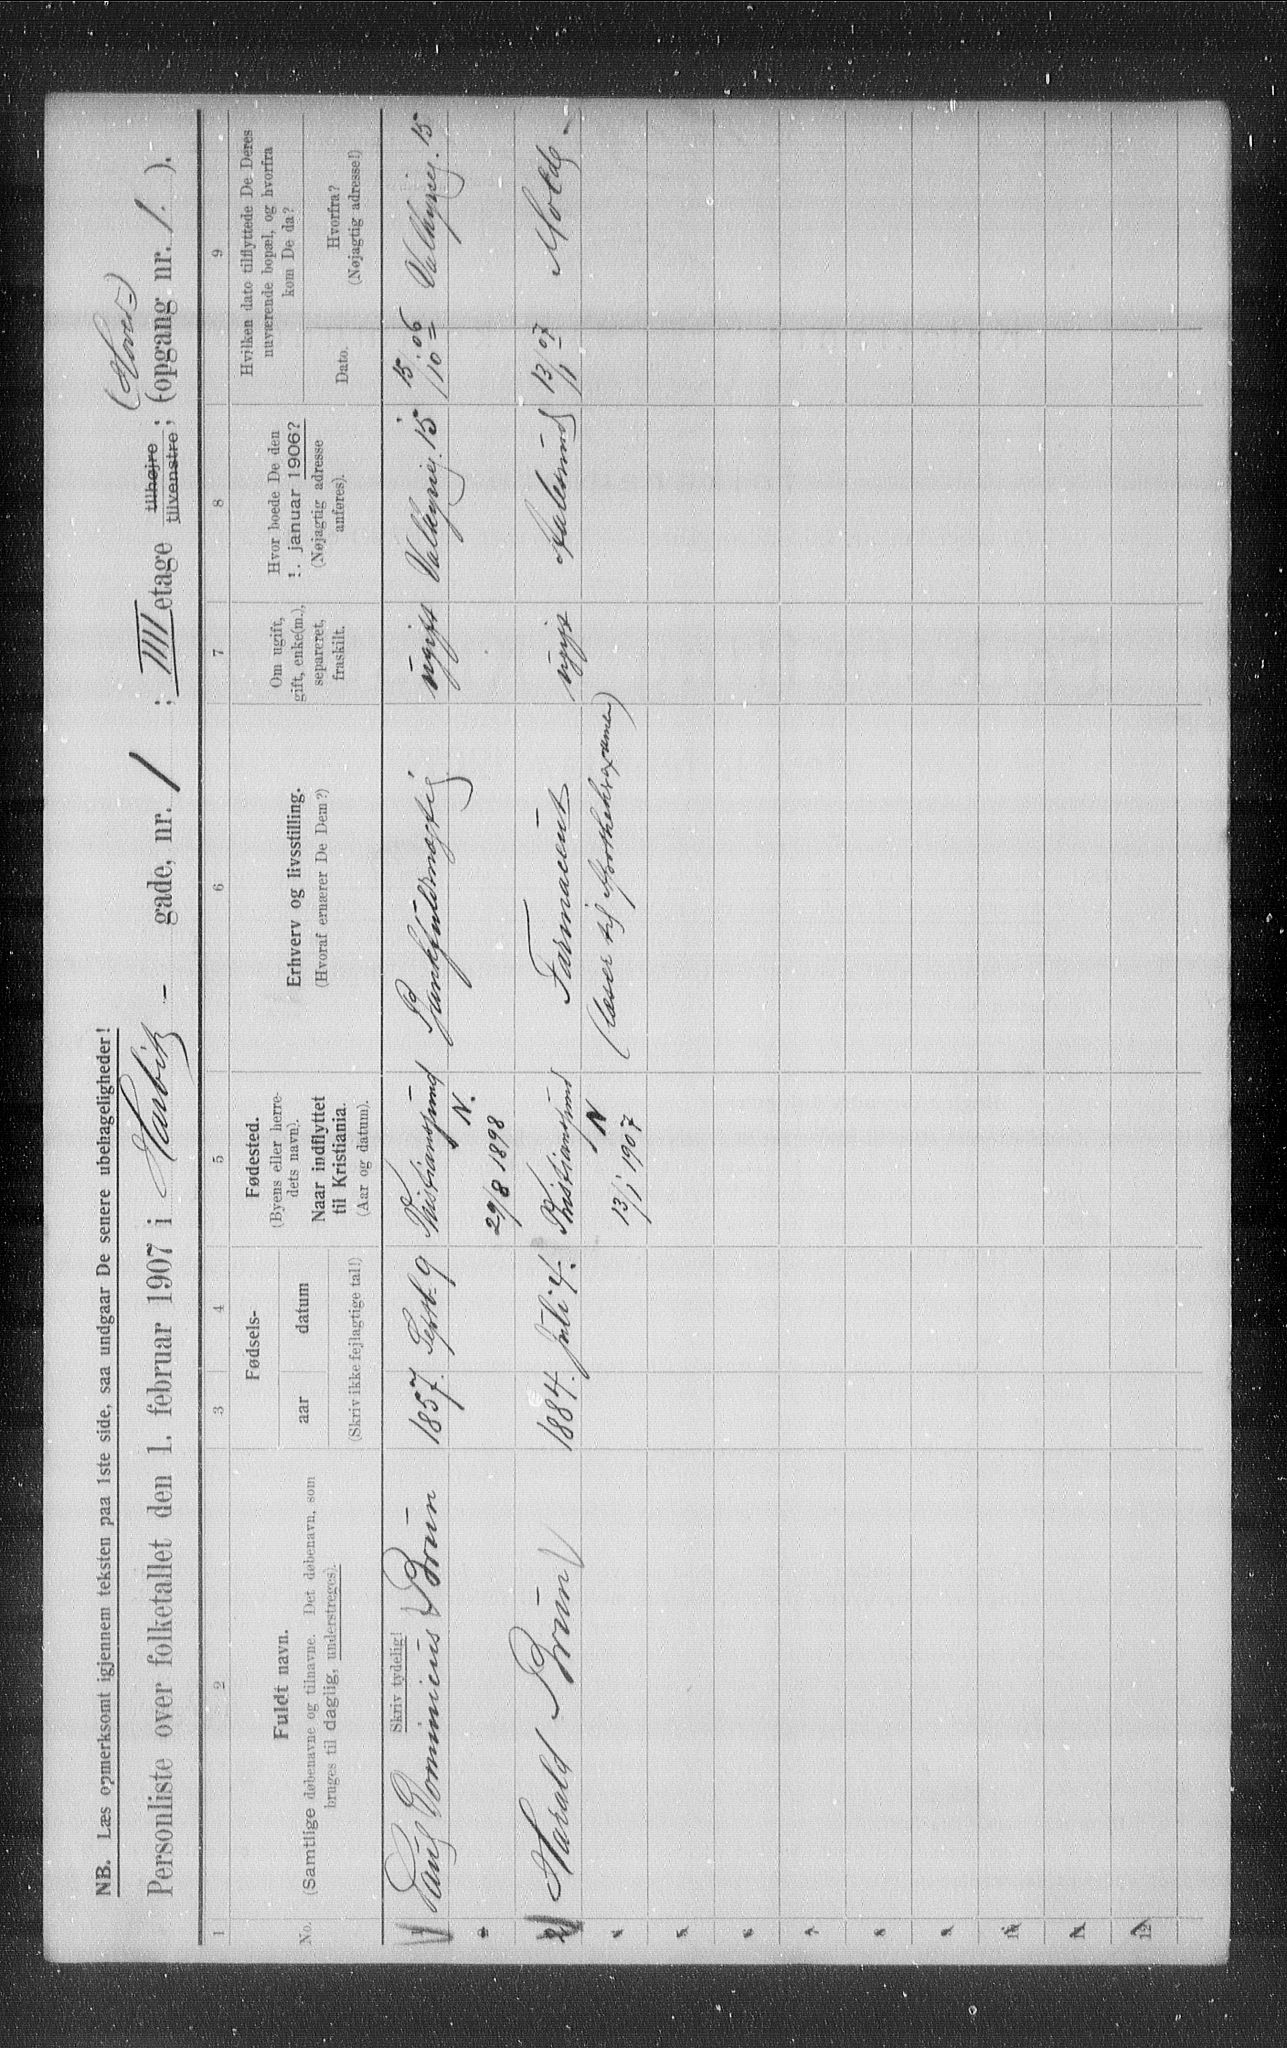 NB. Læs opmerksomt igjennem teksten paa 1ste side, saa undgaar De senere ubehageligheder!
Personliste over folketallet den 1. februar 1907 i Harbitz - gade, nr. 1; IIII etage tilhøjre tilvenstre; (opgang nr. 1.).
1 2 3 4 5 6 7 8 9
No.
Fuldt navn.
(Samtlige døbenavne og tilnavne. Det døbenavn, som
bruges til daglig, understreges).
Skriv tydelig!
Fødsels-
aar datum
(Skriv ikke fejlagtige tal!)
Fødested.
(Byens eller herre-
dets navn).
Naar indflyttet
til Kristiania.
(Aar og datum).
Erhverv og livsstilling.
(Hvoraf ernærer De Dem?)
Om ugift,
gift, enke(m.),
separeret,
fraskilt.
Hvor boede De den
1. januar 1906?
(Nøjagtig adresse
anføres).
Hvilken dato tilflyttede De Deres
nuværende bopæl, og hvorfra
kom De da?
Dato.
Hvorfra?
(Nøjagtig adresse!)
1 Paul Dominicus Brun 1857. Septb. 9 Kristianssund Bankfuldmægtig ugift Valkyrieg. 15 15/10 06 Valkyrieg. 15
N.
29/8 1898
2 Harald Brun 1884. Juli 4. Kristianssund Farmaceut ugift Aalesund 13/1 07 Molde -
N (læser til Apotheksexamen)
13/1 1907
4
5
6
7
8
9
10
11
12